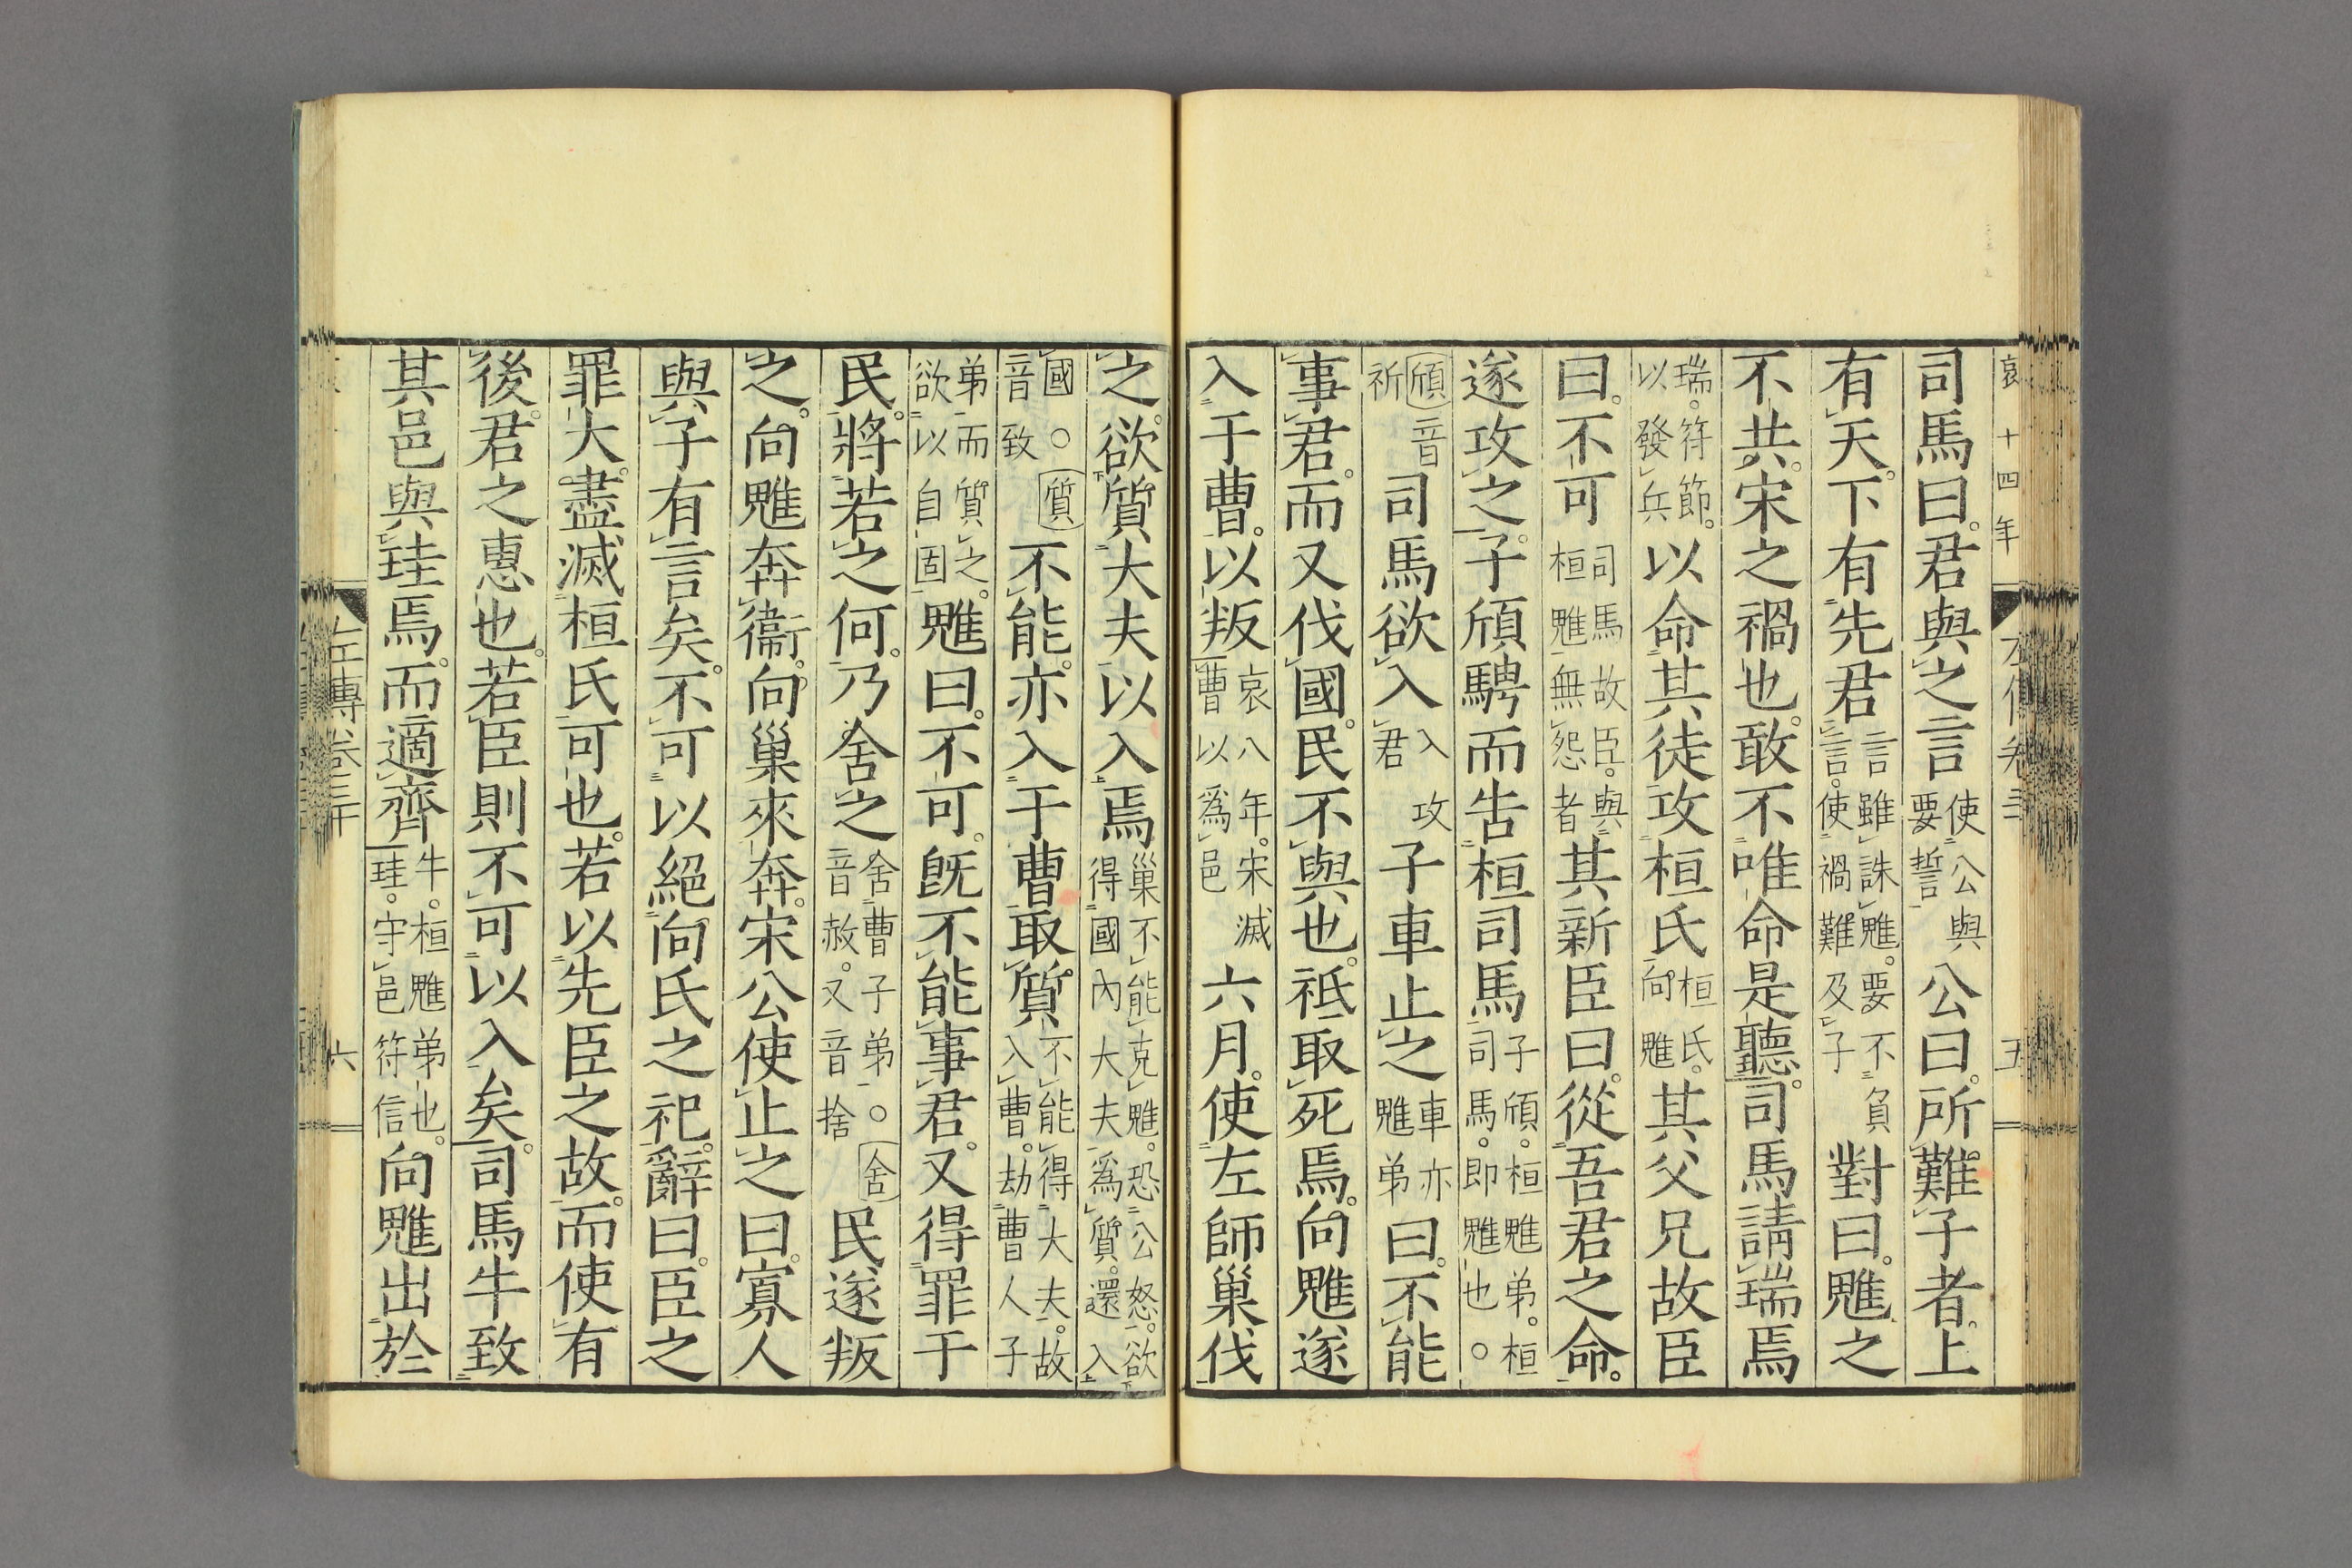 哀十四年
五
司馬曰。君與之言使公與要誓公曰。所難子者。上
有天。下有先君言雖誅魋。要不負言。使禍難及子對曰。魋之
不共。宋之禍也。敢不唯命是聽。司馬請瑞焉
瑞。符節。以發兵以命其徒攻桓氏桓氏。向魋其父兄故臣
曰。不可司馬故臣。與桓魋無怨者其新臣曰。從吾君之命。
遂攻之。子頎騁而告桓司馬子頎。桓魋弟。桓司馬。即魋也。○
頎音祈司馬欲入入攻君子車止之車亦魋弟曰。不能
事君。而又伐國。民不與也。祗取死焉。向魋遂
入于曹。以叛哀八年。宋滅曹以爲邑六月。使左師巢伐
之。欲質大夫以入焉巢不能克魋。恐公怒。欲得國內大夫爲質。還入
國○質音致不能。亦入于曹取質不能得大夫。故入曹。劫曹人子
弟而質之。欲以自固魋曰。不可。旣不能事君。又得罪于
民。將若之何。乃舍之舍曹子弟○舍音赦。又音捨民遂叛
之。向魋奔衞。向巢來奔。宋公使止之曰。寡人
與子有言矣。不可以絕向氏之祀。辭曰。臣之
罪大。盡滅桓氏可也。若以先臣之故。而使有
後。君之惠也。若臣則不可以入矣。司馬牛致
其邑與珪焉。而適齊牛。桓魋弟也。珪。守邑符信向魋出於
左傳卷三十
六